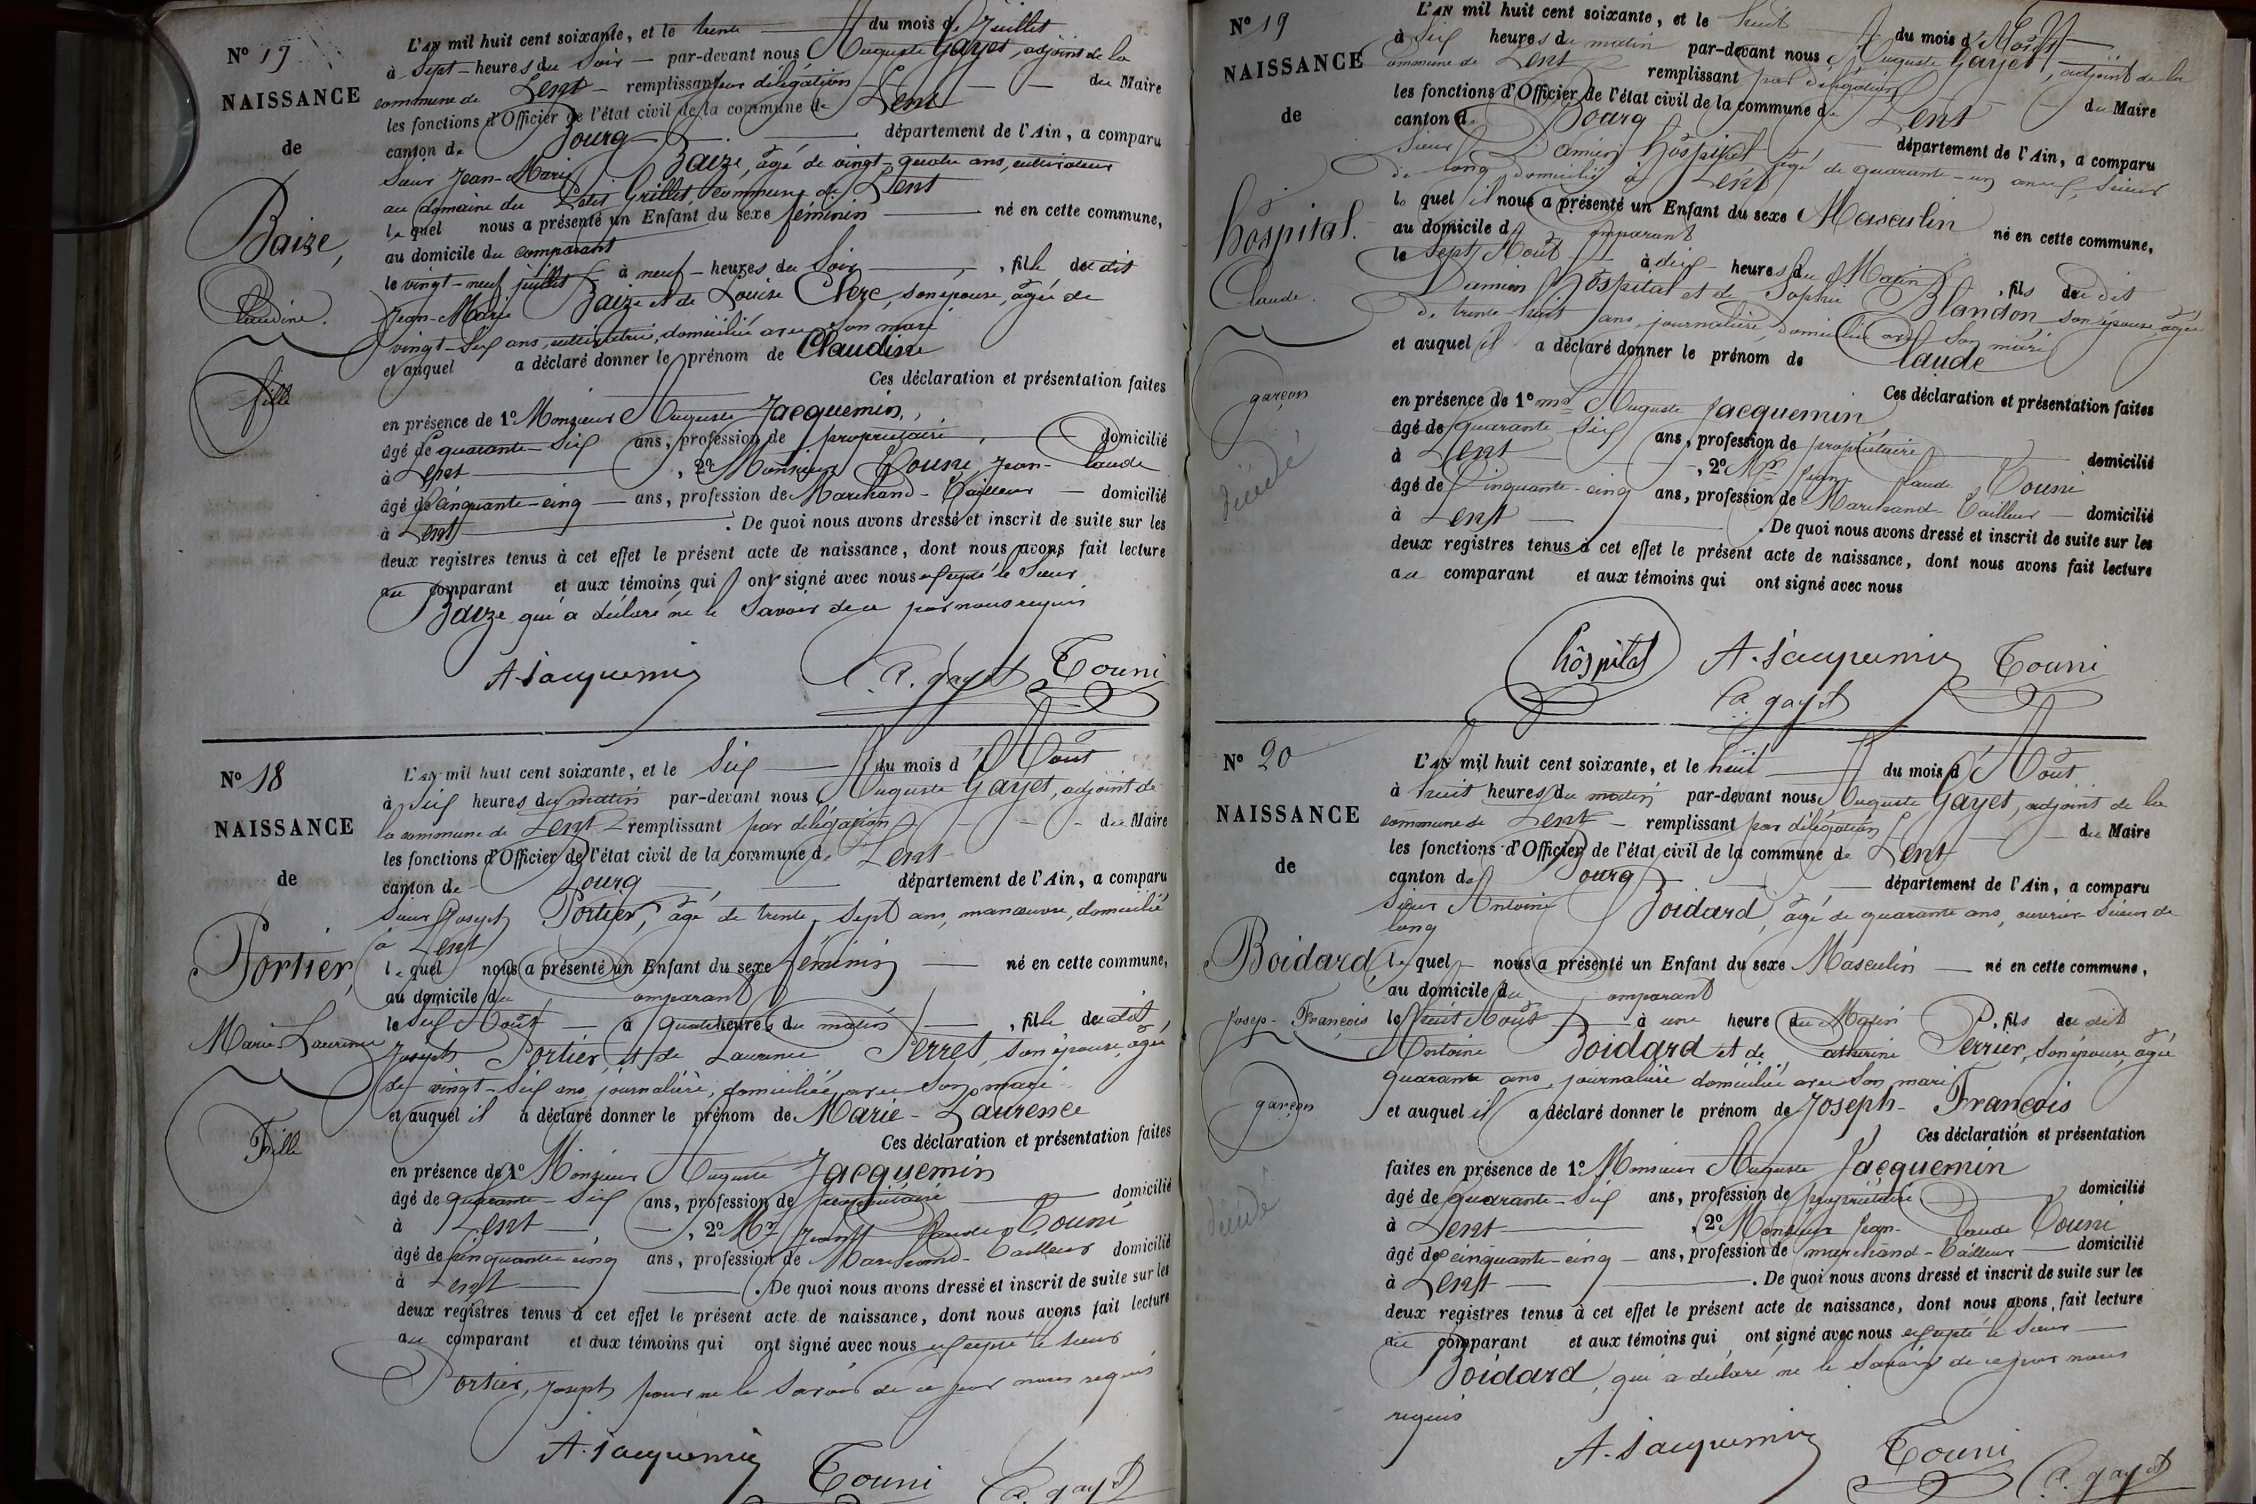 N° 17
NAISSANCE
de
Baize,
Claudine.
fille
L'AN mil huit cent soixante, et le trente du mois de Juillet
à Sept heures du Soir par-devant nous Auguste Gayet, adjoint de la
commune de Lent remplissant par délégation du Maire
les fonctions d'Officier de l'état civil de la commune de Lent
canton de Bourg département de l'Ain, a comparu
Sieur Jean-Marie Baize, âgé de vingt-quatre ans, cultivateur
au domaine du Petit Grillet, commune de Lent
lequel nous a présenté un Enfant du sexe féminin né en cette commune,
au domicile du comparant
le vingt-neuf juillet à neuf heures du Soir, fille du dit
Jean-Marie Baize et de Louise Clerc, son épouse, âgée de
vingt-six ans, cultivatrice, domiciliée avec son mari
et auquel a déclaré donner le prénom de Claudine
Ces déclaration et présentation faites
en présence de 1° Monsieur Auguste Jacquemin,
âgé de quarante-six ans, profession de propriétaire, domicilié
à Lent, 2° Monsieur Touni Jean-Claude
âgé de cinquante-cinq ans, profession de Marchand-Tailleur domicilié
à Lent. De quoi nous avons dressé et inscrit de suite sur les
deux registres tenus à cet effet le présent acte de naissance, dont nous avons fait lecture
au comparant et aux témoins qui ont signé avec nous excepté le Sieur
Baize qui a déclaré ne le Savoir de ce par nous requis
A. Jacquemin A. gayet Touni
N° 18
NAISSANCE
de
Portier,
Marie-Laurence
Fille
L'AN mil huit cent soixante, et le Six du mois d'Août
à Six heures du matin par-devant nous Auguste Gayet, adjoint de
la commune de Lent remplissant par délégation du Maire
les fonctions d'Officier de l'état civil de la commune de Lent
canton de Bourg département de l'Ain, a comparu
Sieur Joseph Portier, âgé de trente-sept ans, manœuvre, domicilié
à Lent
lequel nous a présenté un Enfant du sexe féminin né en cette commune,
au domicile du Comparant
le Six Août à quatre heures du matin, fille du dit
Joseph Portier, et de Laurence Perret, son épouse, âgée
de vingt-six ans, journalière, domiciliée avec Son mari
et auquel il a déclaré donner le prénom de Marie-Laurence
Ces déclaration et présentation faites
en présence de 1° Monsieur Auguste Jacquemin
âgé de quarante-six ans, profession de propriétaire domicilié
à Lent, 2° Mr Jean Claude Touni
âgé de cinquante cinq ans, profession de Marchand-Tailleur domicilié
à Lent. De quoi nous avons dressé et inscrit de suite sur les
deux registres tenus à cet effet le présent acte de naissance, dont nous avons fait lecture
au comparant et aux témoins qui ont signé avec nous excepté le sieur
Portier, Joseph pour ne le Savoir de ce par nous requis
A. Jacquemin Touni A. gayet
N° 19
NAISSANCE
de
hôspital.
Claude.
garçon
décédé
L'AN mil huit cent soixante, et le huit du mois d'Août
à Six heures du matin par-devant nous Auguste Gayet, adjoint de la
commune de Lent remplissant par délégation du Maire
les fonctions d'Officier de l'état civil de la commune de Lent
canton de Bourg département de l'Ain, a comparu
Sieur Damien hôspital âgé de quarante-un ans, Scieur
de long domicilié à Lent
lequel il nous a présenté un Enfant du sexe Masculin né en cette commune,
au domicile du Comparant
le Sept Août à dix heures du Matin, fils du dit
Damien hôspital et de Sophie Blandon son épouse, âgée
de trente-huit ans, journalière, domiciliée avec Son mari
et auquel il a déclaré donner le prénom de Claude
Ces déclaration et présentation faites
en présence de 1° Mr Auguste Jacquemin
âgé de quarante-Six ans, profession de propriétaire domicilié
à Lent, 2° Mr Jean Claude Touni
âgé de Cinquante-cinq ans, profession de Marchand-Tailleur domicilié
à Lent. De quoi nous avons dressé et inscrit de suite sur les
deux registres tenus à cet effet le présent acte de naissance, dont nous avons fait lecture
au comparant et aux témoins qui ont signé avec nous
hôspital A. Jacquemin Touni
A. gayet
N° 20
NAISSANCE
de
Boidard
Josep-François
garçon
décédé
L'AN mil huit cent soixante, et le huit du mois d'Août
à huit heures du matin par-devant nous Auguste Gayet, adjoint de la
commune de Lent remplissant par délégation du Maire
les fonctions d'Officier de l'état civil de la commune de Lent
canton de Bourg département de l'Ain, a comparu
Sieur Antoine Boidard, âgé de quarante ans, ouvrier Scieur de
long
lequel nous a présenté un Enfant du sexe Masculin né en cette commune,
au domicile du Comparant
le huit Août à une heure du Matin, fils du dit
Antoine Boidard et de Catherine Perrier, Son épouse, âgée
quarante ans, journalière domiciliée avec Son mari
et auquel il a déclaré donner le prénom de Joseph-François
Ces déclaration et présentation
faites en présence de 1° Monsieur Auguste Jacquemin
âgé de quarante-Six ans, profession de propriétaire domicilié
à Lent, 2° Monsieur Jean-Claude Touni
âgé de cinquante-cinq ans, profession de marchand-Tailleur domicilié
à Lent. De quoi nous avons dressé et inscrit de suite sur les
deux registres tenus à cet effet le présent acte de naissance, dont nous avons fait lecture
au comparant et aux témoins qui ont signé avec nous excepté le Sieur
Boidard, qui a déclaré ne le Savoir de ce par nous
requis
A. Jacquemin Touni A. gayet